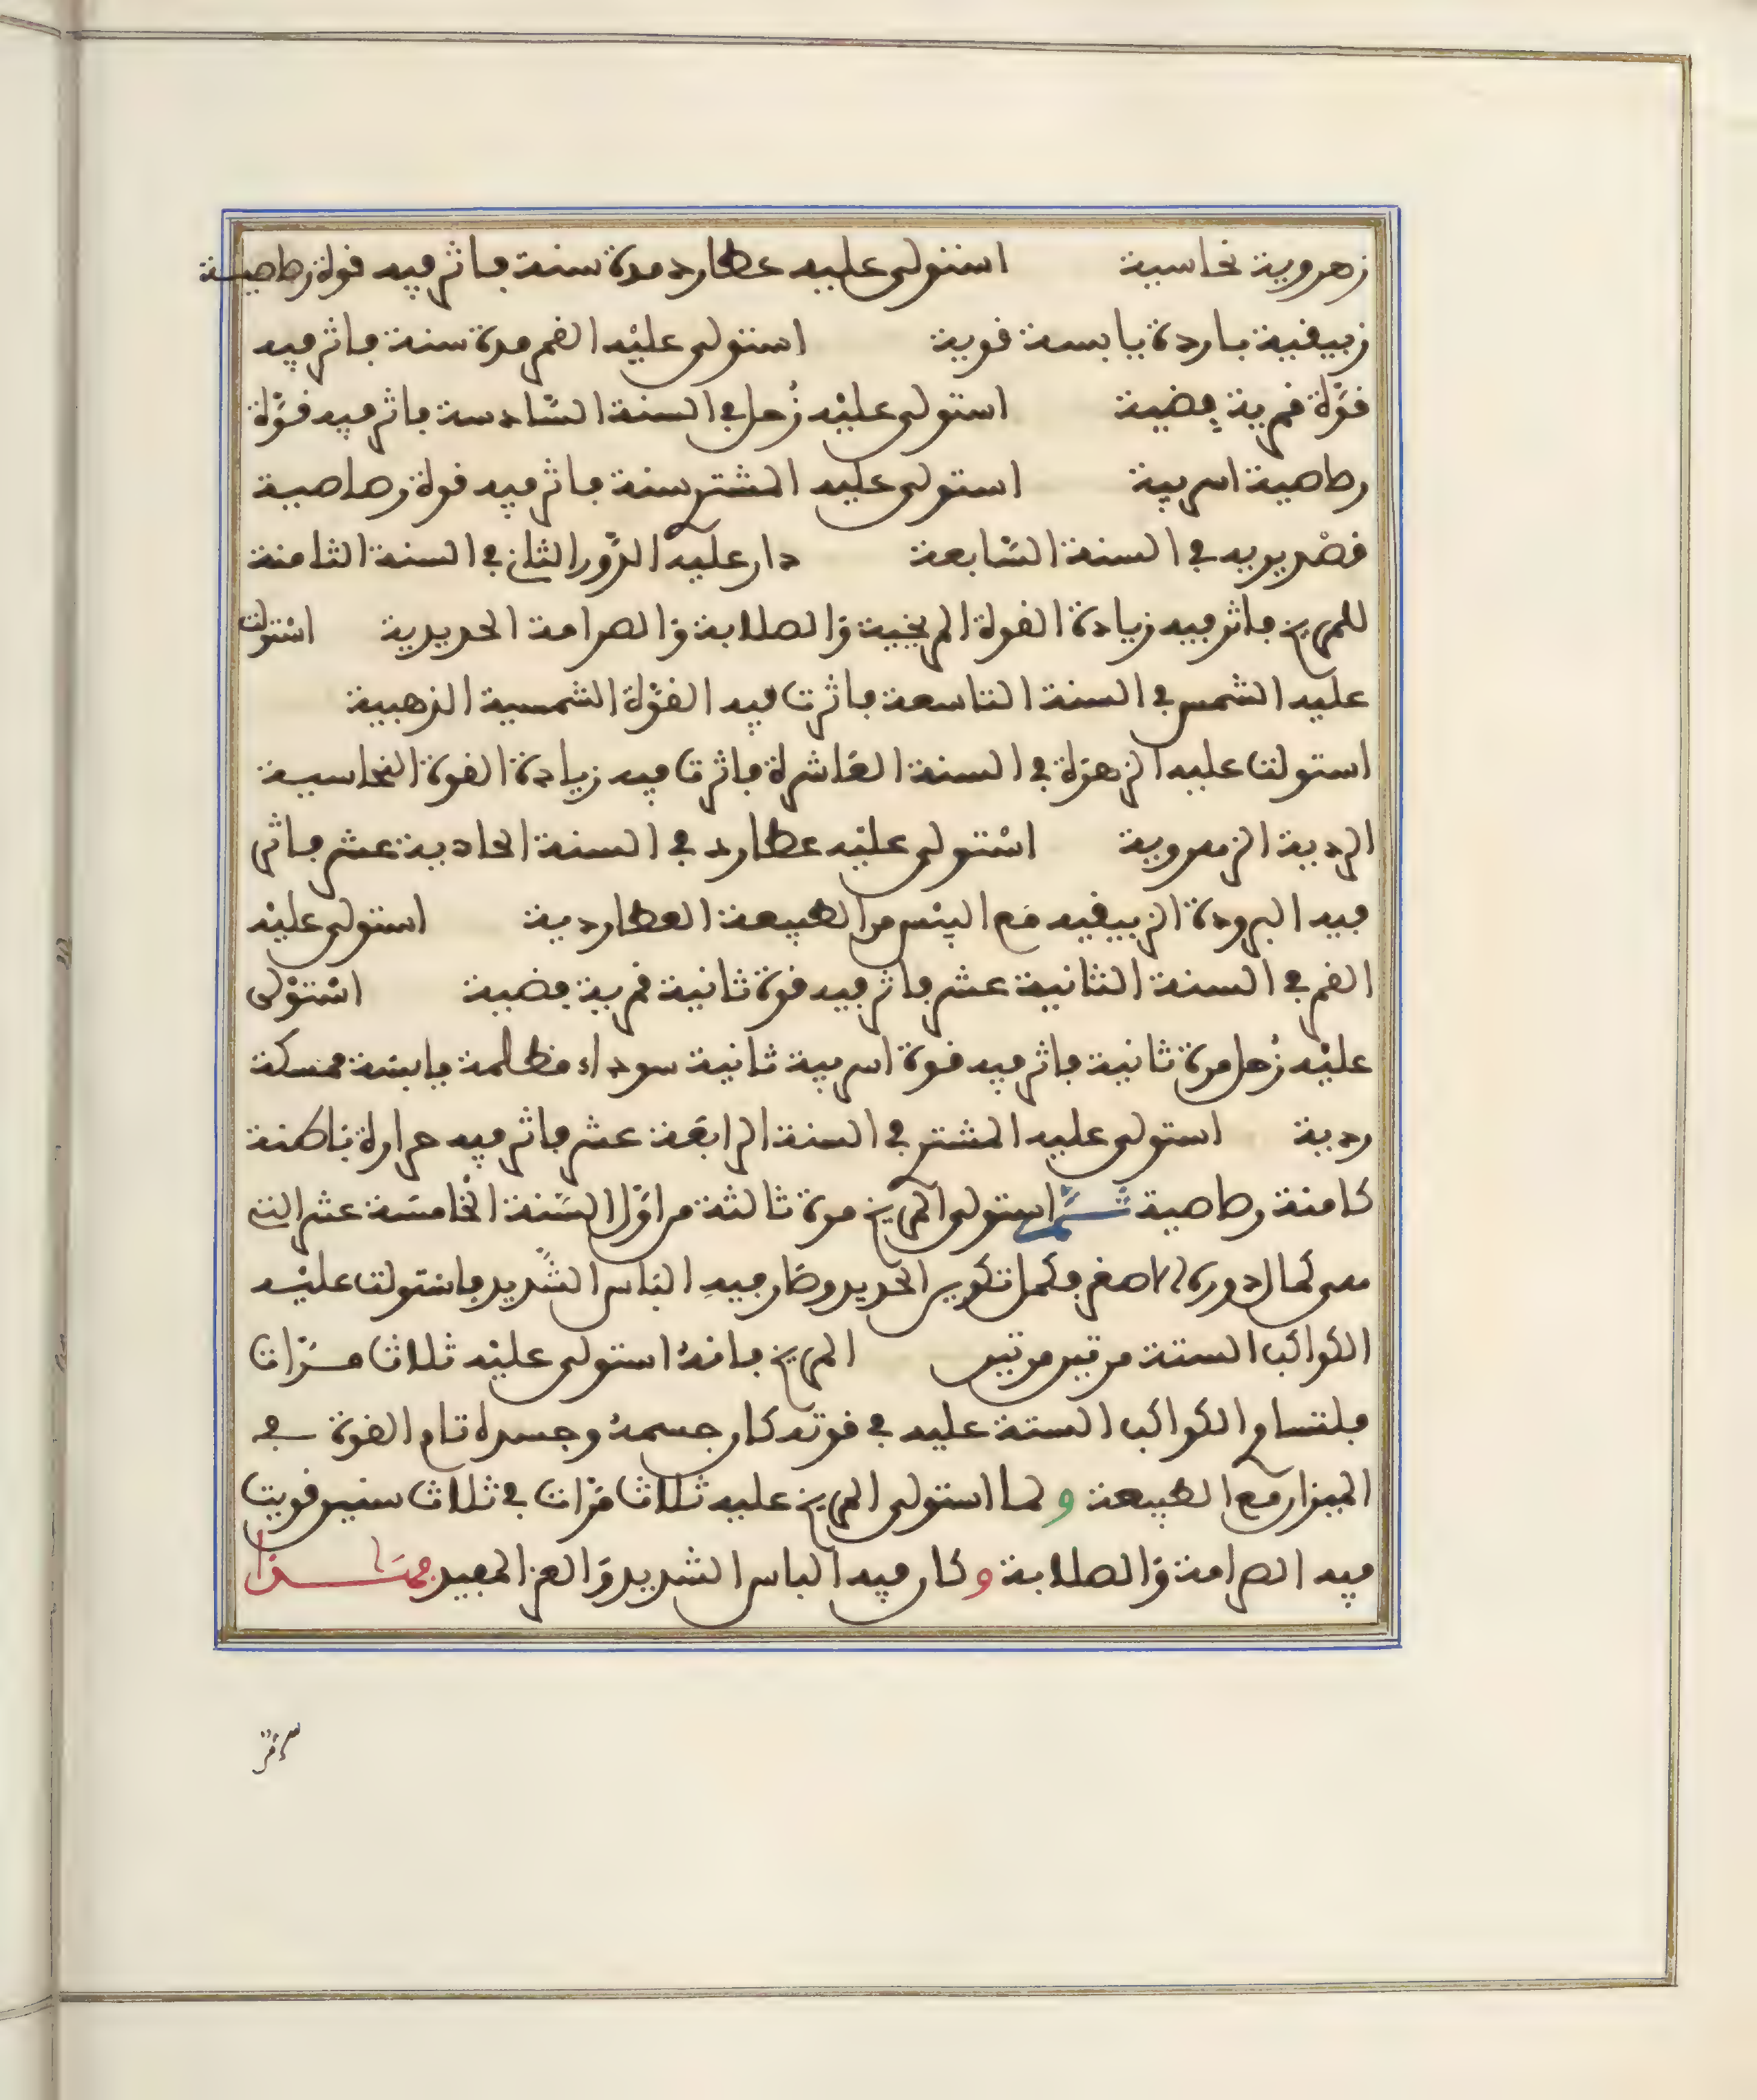 زهروية نحاسية استولى عليه عطارد مدة سنة فاثر فيه قوة رصاصية
زيبقية باردة يابسة قوية استولى عليْه القمر مدة سنة فاثر فيه
قوّة قمرية فضية استولى عليْه زُحل في السنة السّادسة فاثر فيه قوّة
رصاصية اسربية استولى عليه المشتري سنة فاثر فيه قوة رصاصية
قصْديريه في السنة السّابعة دار عليه الدّور الثاني في السنة الثامنة
للمريخ فاثر فيه زيادة القوة المريخية وَالصلابة وَالصرامة الحديدية اسْتولت
عليه الشمس في السنة التاسعة فاثرت فيه القوّة الشمسية الذهبية
استولت عليه الزهرَة في السنة العَاشرة فاثرت فيه زيادة القوة النحاسية
الردية الزهروية اسْتولى عليْه عطارد في السنة الحادية عشر فاثر
فيه البرودة الزيبقيه مَع اليبْس من الطبيعة العطاردية استولى عليْه
القمر في السنة الثانية عشر فاثر فيه قوة ثانية قمرية فضية اسْتوْلى
عليْه زُحل مرة ثانية فاثر فيه قوة اسربية ثانية سوداء مظلمة يابسَة ممسكة
ردية استولى عليه المشتري في السنة الرابعَة عشر فاثر فيه حرارة باطنة
كامنة رصاصية ثــمَّ استولى المريخ مرة ثالثة من اوّل السَّنة الخَامسَة عشر التي
هى كمال دورة الاصغر فكمل تكوين الحديد وصَار فيهِ الباس الشّديد فاستولت عليْه
الكواكب الستة مرتين مرتين المريخ فانهُ استولى عليْه ثلاث مـرّات
فلتساوي الكواكب الستة عليه في قوته كان جسمهُ وجسده تام القوة في
الميزان مع الطبيعة و لما استولى المريخ عليه ثلاث مَرّات في ثلاث سنين قويت
فيه الصرامة وَالصلابة و كان فيه الباس الشديد وَالعز المفيد فهـذا